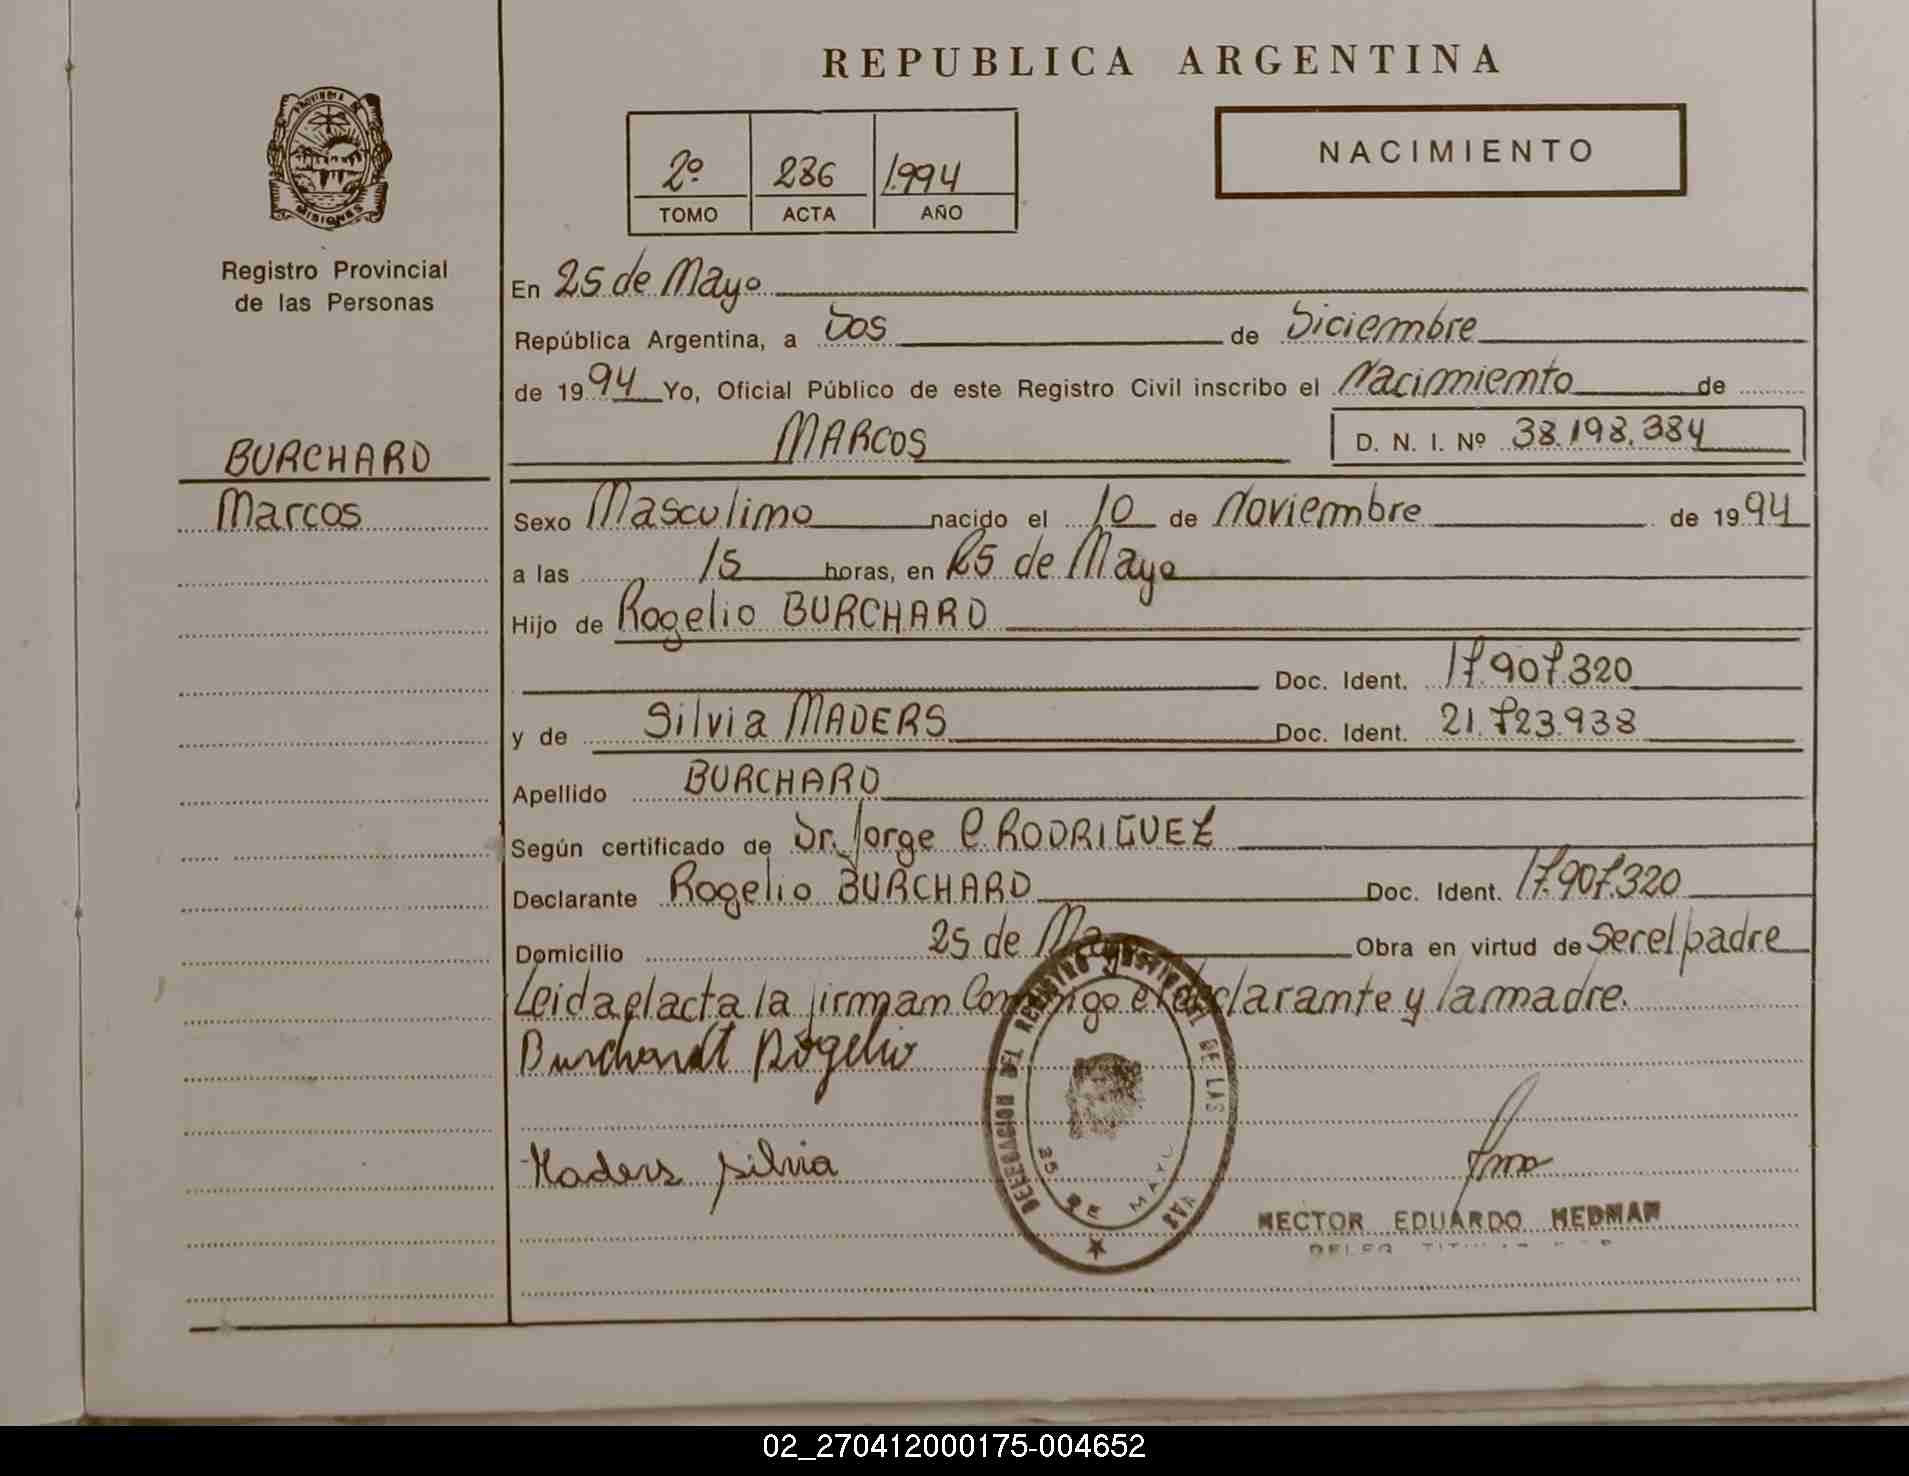 REPUBLICA ARGENTINA
PROVINCIA DE
MISIONES
Registro Provincial
de las Personas
2º 286 1.994
TOMO ACTA AÑO
NACIMIENTO
En 25 de Mayo
República Argentina, a Dos de Diciembre
de 1994 Yo, Oficial Público de este Registro Civil inscribo el Nacimiento de
BURCHARD
Marcos
MARCOS D. N. I. Nº 38.198.384
Sexo Masculino nacido el 10 de Noviembre de 1994
a las 15 horas, en 25 de Mayo
Hijo de Rogelio BURCHARD
Doc. Ident. 17.907.320
y de Silvia MADERS Doc. Ident. 21.723.938
Apellido BURCHARD
Según certificado de Dr. Jorge C. RODRIGUEZ
Declarante Rogelio BURCHARD Doc. Ident. 17.907.320
Domicilio 25 de Mayo Obra en virtud de ser el padre
Leida el acta la firman Conmigo el declarante y la madre.
Burchardt Rogelio
Maders Silvia
DELEGACION DEL REGISTRO DE LAS
25 DE MAYO
HECTOR EDUARDO HEDMAN
02_270412000175-004652